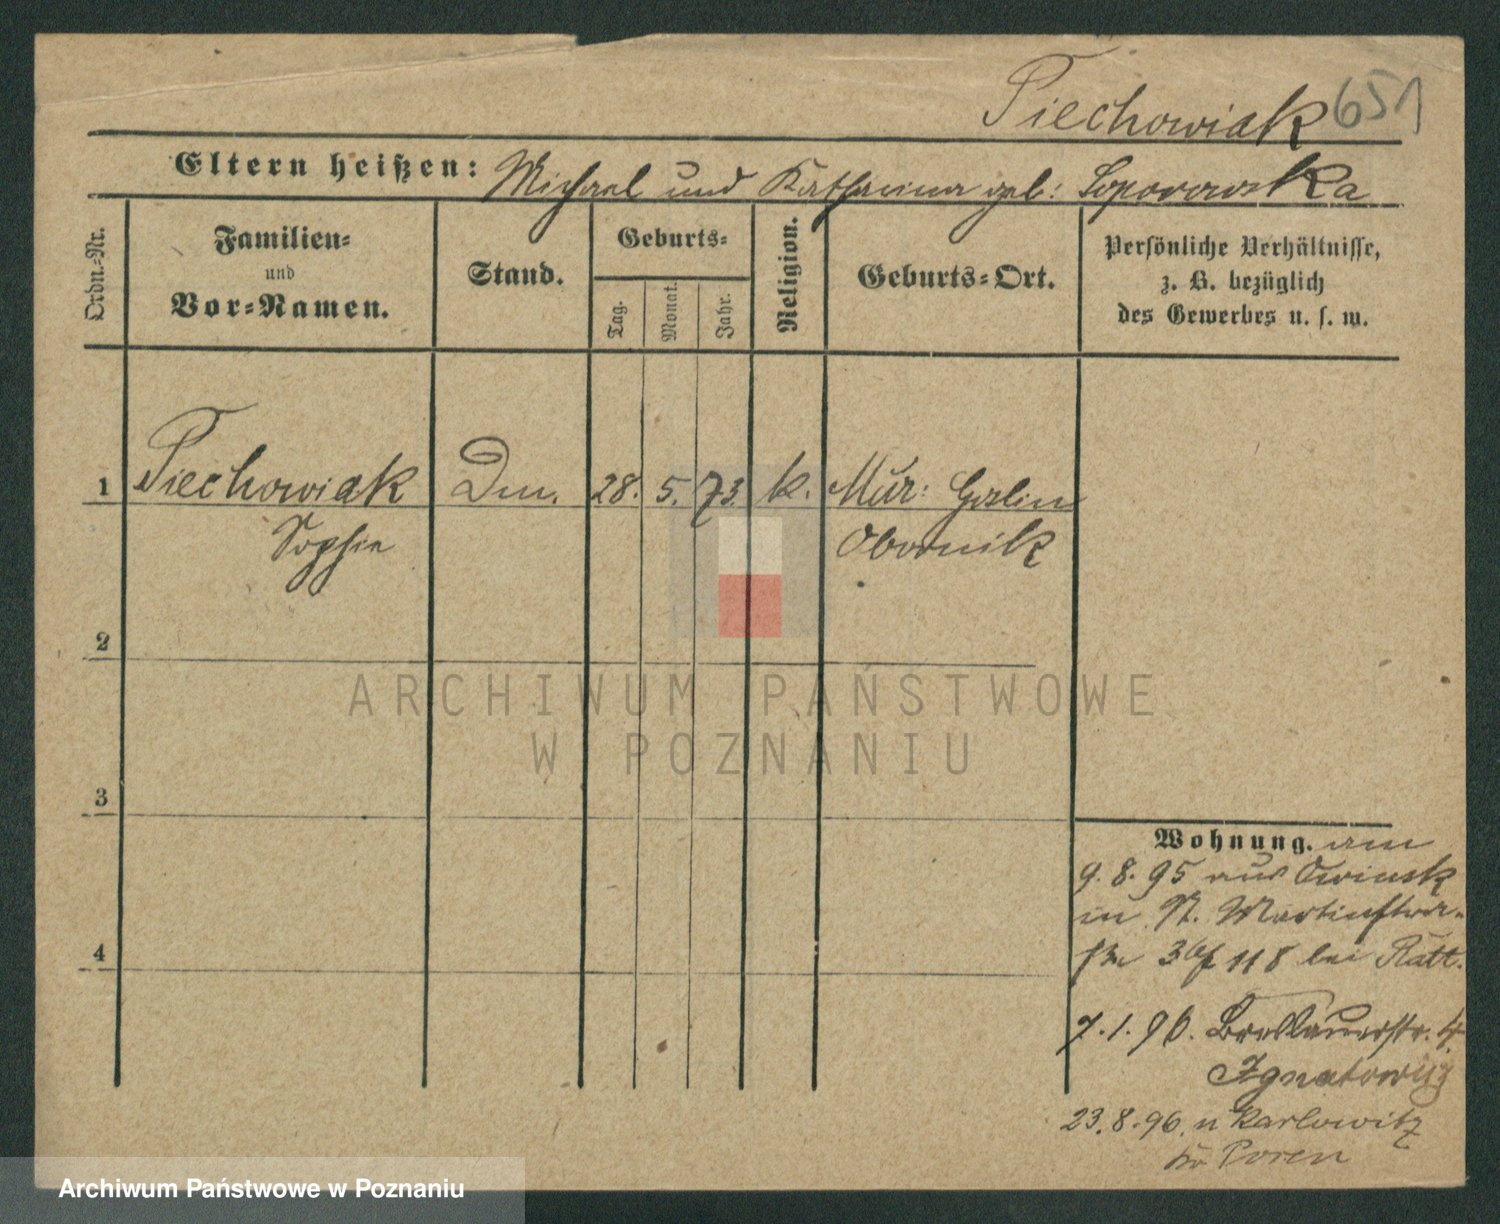 Piechowiak 651
Eltern heißen: Michael und Katharina geb: Soporowska
Ordn.-Nr.
Familien- und Vor-Namen.
Stand.
Geburts-
Tag.
Monat.
Jahr.
Religion.
Geburts-Ort.
Persönliche Verhältnisse,
z. B. bezüglich
des Gewerbes u. s. w.
1 Piechowiak Dm. 28. 5. 73. k. Mur: Goslin
Sophie Obornik
2
3
4
Wohnung. am
9. 8. 95 aus Owinsk
in St. Martinstra-
ße 118 bei Rätt.
7. 1. 96. Breslauerstr. 4.
23. 8. 96. n Karlowitz
Kr Posen
ARCHIWUM PAŃSTWOWE
W POZNANIU
Archiwum Państwowe w Poznaniu